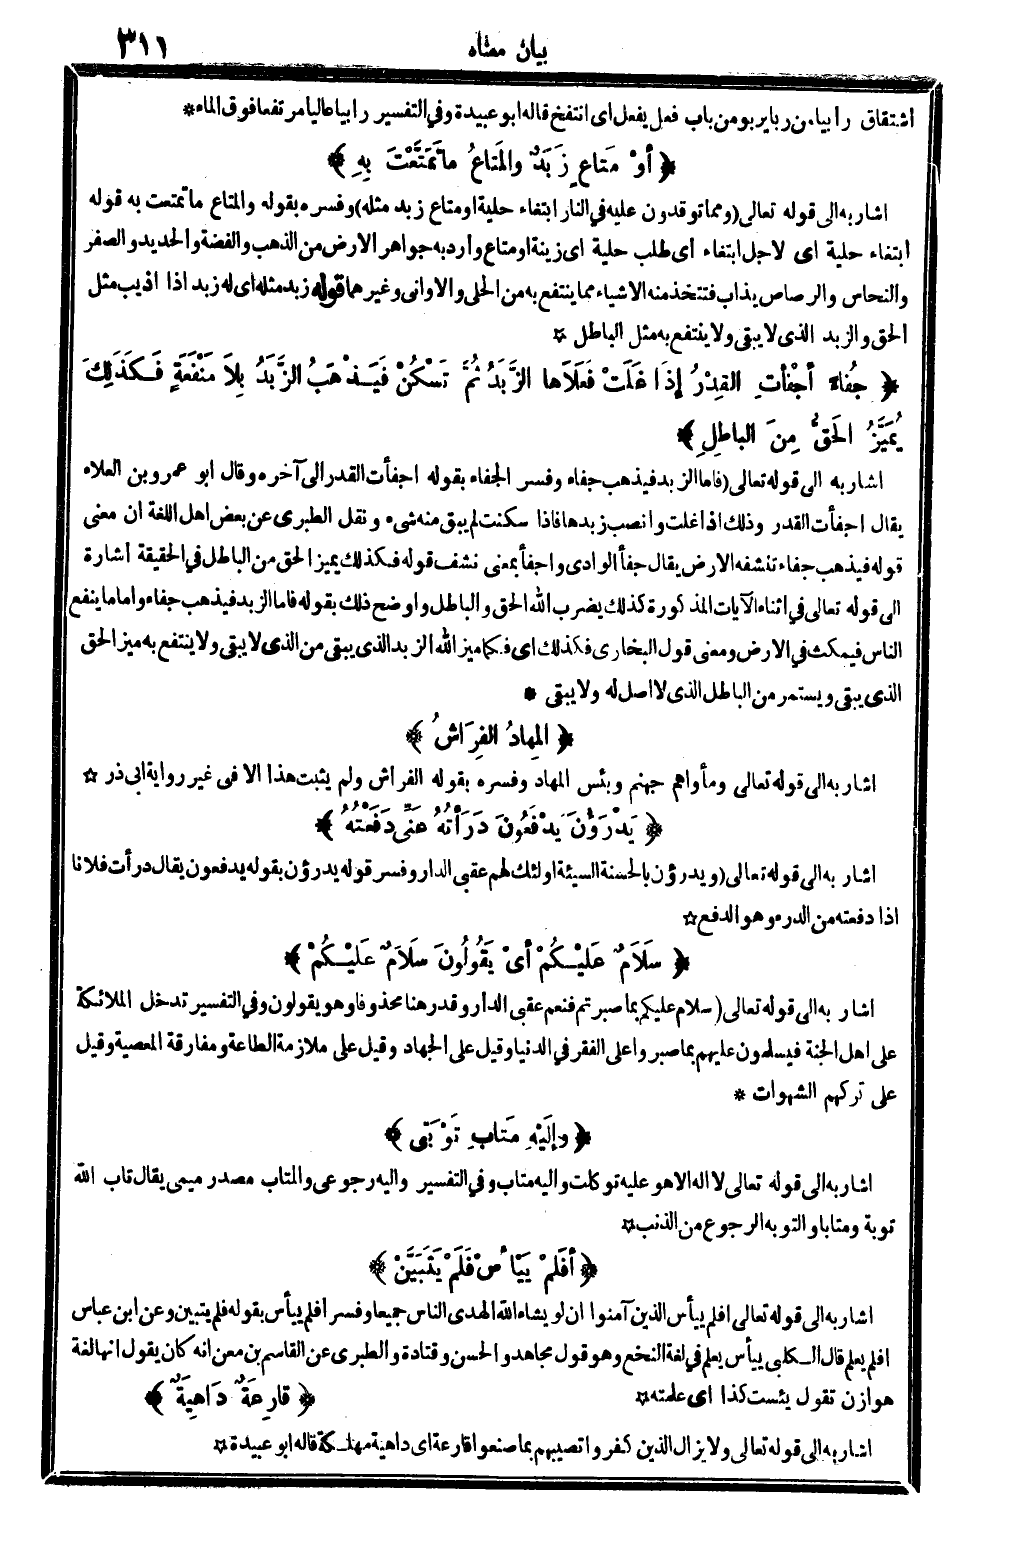 بيان معناه ٣١١
اشتقاق رابيا من ربا يربو من باب فعل يفعل اى انتفخ قاله ابو عبيدة وفى التفسير رابيا طاليا مرتفعا فوق الماء *
﴿ أوْ مَتاعٍ زَبَدٌ والمَتاعُ ما تَمَتَّعْتَ بِهِ ﴾
اشار به الى قوله تعالى (ومما توقدون عليه في النار ابتغاء حلية او متاع زبد مثله) وفسره بقوله والمتاع ما تمتعت به قوله
ابتغاء حلية اى لاجل ابتغاء اى طلب حلية اى زينة او متاع وأرد به جواهر الارض من الذهب والفضة والحديد والصفر
والنحاس والرصاص يذاب فتتخذ منه الاشياء مما ينتفع به من الحلى والاوانى وغيرهما قوله زبد مثله اى له زبد اذا اذيب مثل
الحق والزبد الذى لا يبقى ولا ينتفع به مثل الباطل ☆
﴿ جُفاءً أجْفأتِ القِدْرُ إذَا غَلَتْ فَعَلَاها الزَّبَدُ ثُمَّ تَسْكُنُ فَيَذْهَبُ الزَّبَدُ بِلاَ مَنْفَعَةٍ فَكَذَلِكَ
يُمَيَّزُ الحَقُّ مِنَ الباطِلِ ﴾
اشار به الى قوله تعالى (فاما الزبد فيذهب جفاء وفسر الجفاء بقوله اجفأت القدر الى آخره وقال ابو عمرو بن العلاء
يقال اجفأت القدر وذلك اذا غلت وانصب زبدها فاذا سكنت لم يبق منه شىء ونقل الطبرى عن بعض اهل اللغة ان معنى
قوله فيذهب جفاء تنشفه الارض يقال جفأ الوادى واجفأ بمعنى نشف قوله فكذلك يميز الحق من الباطل في الحقيقة اشارة
الى قوله تعالى في اثناء الآيات المذكورة كذلك يضرب الله الحق والباطل واوضح ذلك بقوله فاما الزبد فيذهب جفاء واما ما ينفع
الناس فيمكث في الارض ومعنى قول البخارى فكذلك اى فكما ميز الله الزبد الذى يبقى من الذى لا يبقى ولا ينتفع به ميز الحق
الذى يبقى ويستمر من الباطل الذى لا اصل له ولا يبقى *
﴿ المِهادُ الفِرَاشُ ﴾
اشار به الى قوله تعالى ومأواهم جهنم وبئس المهاد وفسره بقوله الفراش ولم يثبت هذا الا فى غير رواية ابى ذر ☆
﴿ يَدْرَؤُنَ يَدْفَعُونَ دَرَأْتُهُ عَنِّى دَفَعْتُهُ ﴾
اشار به الى قوله تعالى (ويدرؤن بالحسنة السيئة اولئك لهم عقبى الدار وفسر قوله يدرؤن بقوله يدفعون يقال درأت فلانا
اذا دفعته من الدرء وهو الدفع ☆
﴿ سَلَامٌ عَلَيْكُمْ أىْ يَقُولُونَ سَلَامٌ عَلَيْكُمْ ﴾
اشار به الى قوله تعالى (سلام عليكم بما صبرتم فنعم عقبى الدار وقدر هنا محذوفا وهو يقولون وفي التفسير تدخل الملائكة
على اهل الجنة فيسلمون عليهم بما صبروا على الفقر في الدنيا وقيل على الجهاد وقيل على ملازمة الطاعة ومفارقة المعصية وقيل
على تركهم الشهوات *
﴿ وإلَيْهِ مَتابِ تَوْبَتِى ﴾
اشار به الى قوله تعالى لا اله الا هو عليه توكلت واليه متاب وفي التفسير واليه رجوعى والمتاب مصدر ميمى يقال تاب الله
توبة ومتابا والتوبه الرجوع من الذنب ☆
﴿ أفَلَمْ يَيْأَسْ فَلَمْ يَتَبَيَّنْ ﴾
اشار به الى قوله تعالى افلم ييأس الذين آمنوا ان لو يشاء الله لهدى الناس جميعا وفسر افلم ييأس بقوله فلم يتبين وعن ابن عباس
افلم يعلم قال الكلبى ييأس يعلم في لغة النخع وهو قول مجاهد والحسن وقتادة والطبرى عن القاسم بن معن انه كان يقول انها لغة
هوازن تقول يئست كذا اى علمته ☆ ﴿ قارِعَةٌ دَاهِيَةٌ ﴾
اشار به الى قوله تعالى ولا يزال الذين كفروا تصيبهم بما صنعوا قارعة اى داهية مهلكة قاله ابو عبيدة ☆